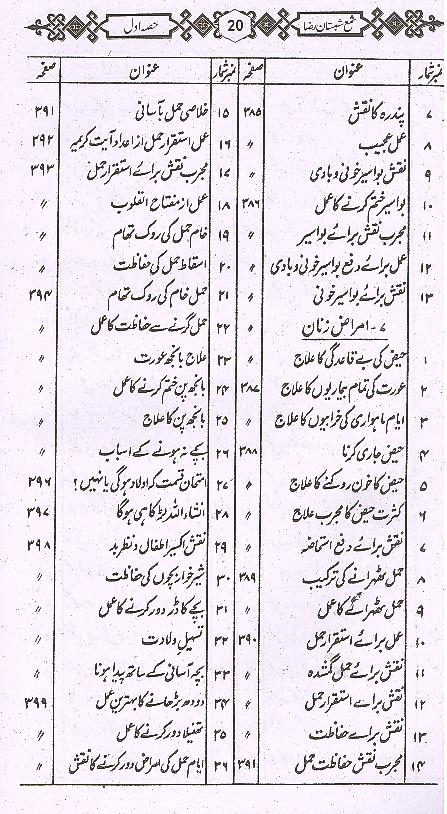 شمع شبستان رضا 20 حصہ اول
نمبر شمار عنوان صفحہ
۷ پندرہ کا نقش ۳۸۵
۸ عمل عجیب 〃
۹ نقش بواسیر خونی و بادی 〃
۱۰ بواسیر ختم کرنے کا عمل ۳۸۶
۱۱ مجرب نقش برائے بواسیر 〃
۱۲ عمل برائے دفع بواسیر خونی و بادی 〃
۱۳ نقش برائے بواسیر خونی 〃
۷ - امراض زنان
۱ حیض کی بے قاعدگی کا علاج 〃
۲ عورت کی تمام بیماریوں کا علاج ۳۸۷
۳ ایام ماہواری کی خرابیوں کا علاج 〃
۴ حیض جاری کرنا ۳۸۸
۵ حیض کا خون روکنے کا علاج 〃
۶ کثرت حیض کا مجرب علاج 〃
۷ نقش برائے دفع استحاضہ 〃
۸ حمل ٹھہرانے کی ترکیب ۳۸۹
۹ حمل ٹھہرانے کا عمل 〃
۱۰ عمل برائے استقرار حمل ۳۹۰
۱۱ نقش برائے حمل گمشدہ 〃
۱۲ نقش برائے استقرار حمل 〃
۱۳ نقش برائے حفاظت 〃
۱۴ مجرب نقش حفاظت حمل ۳۹۱
نمبر شمار عنوان صفحہ
۱۵ خلاصی حمل بآسانی ۳۹۱
۱۶ عمل استقرار حمل از اعداد آیت کریمہ ۲۹۲
۱۷ مجرب نقش برائے استقرار حمل ۳۹۳
۱۸ عمل از مفتاح القلوب 〃
۱۹ خام حمل کی روک تھام 〃
۲۰ اسقاط حمل کی حفاظت 〃
۲۱ حمل خام کی روک تھام ۳۹۴
۲۲ حمل گرنے سے حفاظت کا عمل 〃
۲۳ علاج بانجھ عورت 〃
۲۴ بانجھ پن ختم کرنے کا عمل 〃
۲۵ بانجھ پن کا علاج 〃
۲۶ بچے نہ ہونے کے اسباب 〃
۲۷ امتحان قسمت کہ اولاد ہوگی یا نہیں؟ ۲۹۶
۲۸ انشاء اللہ لڑکا ہی ہوگا ۳۹۷
۲۹ نقش اکسیر اطفال و نظر بد ۳۹۸
۳۰ شیر خوار بچوں کی حفاظت 〃
۳۱ بچے کا ڈر دور کرنے کا عمل 〃
۳۲ تسہیل ولادت 〃
۳۳ بچہ آسانی کے ساتھ پیدا ہونا 〃
۳۴ دودھ بڑھانے کا بہترین عمل ۳۹۹
۳۵ تھنیلا دور کرنے کا عمل 〃
۳۶ ایام حمل کی امراض دور کرنے کا نقش 〃